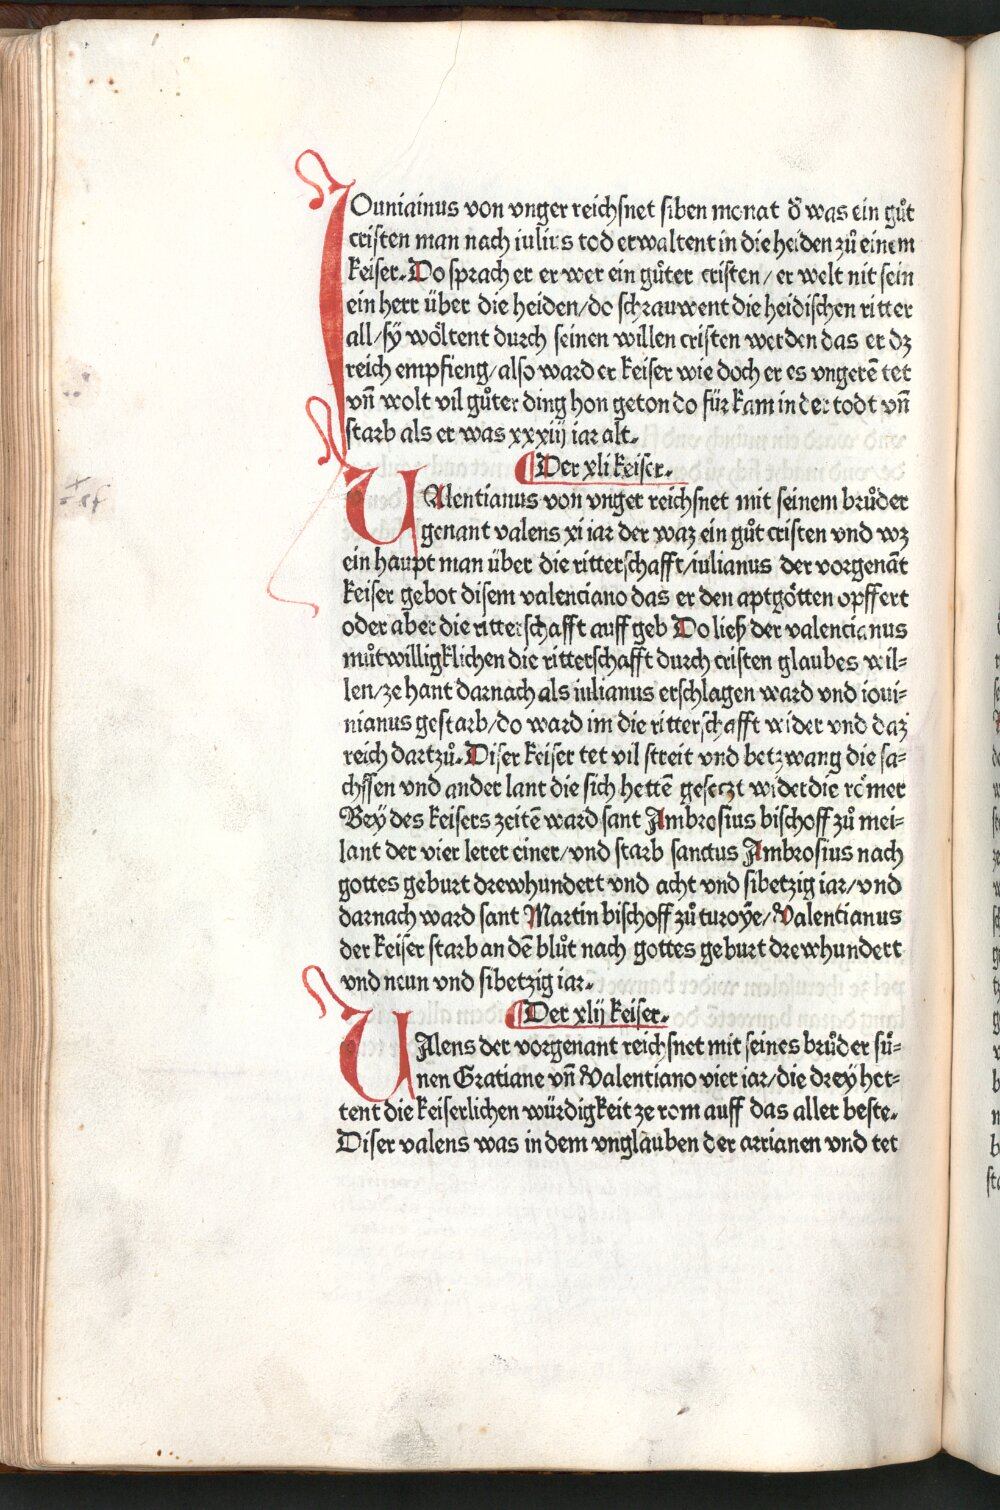 IOuniainus von vnger reichsnet siben monat d̾ was ein gůt
cristen man nach iulius tod erwaltent in die heiden zů einem
keiser. Do sprach er er wer ein gůter cristen/ er welt nit sein
ein herr über die heiden/do schrauwent die heidischen ritter
all/sÿ wöltent durch seinen willen cristen werden das er dz
reich empfieng/also ward er keiser wie doch er es vngerē tet
vn̄ wolt vil gůter ding hon geton do für kam in der todt vn̄
starb als er was xxxiij iar alt.
Der xli keiser.
VAlentianus von vnger reichsnet mit seinem brůder
genant valens xi iar der waz ein gůt cristen vnd wz
ein haupt man über die ritterschafft/iulianus der vorgenāt
keiser gebot disem valenciano das er den aptgötten opffert
oder aber die ritterschafft auff geb Do ließ der valencianus
můtwilligklichen die ritterschafft durch cristen glaubes wil=
len/ze hant darnach als iulianus erschlagen ward vnd ioui=
nianus gestarb/do ward im die ritterschafft wider vnd daz
reich dartzů. Diser keiser tet vil streit vnd betzwang die sa=
chssen vnd ander lant die sich hettē gesetzt wider die römer
Beÿ des keisers zeitē ward sant Ambrosius bischoff zů mei=
lant der vier lerer einer/vnd starb sanctus Ambrosius nach
gottes geburt drewhundert vnd acht vnd sibetzig iar/vnd
darnach ward sant Martin bischoff zů turoÿe/Valentianus
der keiser starb an dē blůt nach gottes geburt drewhundert
vnd neun vnd sibetzig iar.
Der xlij keiser.
VAlens der vorgenant reichsnet mit seines brůder sü=
nen Gratiane vn̄ Valentiano vier iar/die dreÿ het=
tent die keiserlichen würdigkeit ze rom auff das aller beste.
Diser valens was in dem vnglauben der arrianen vnd tet